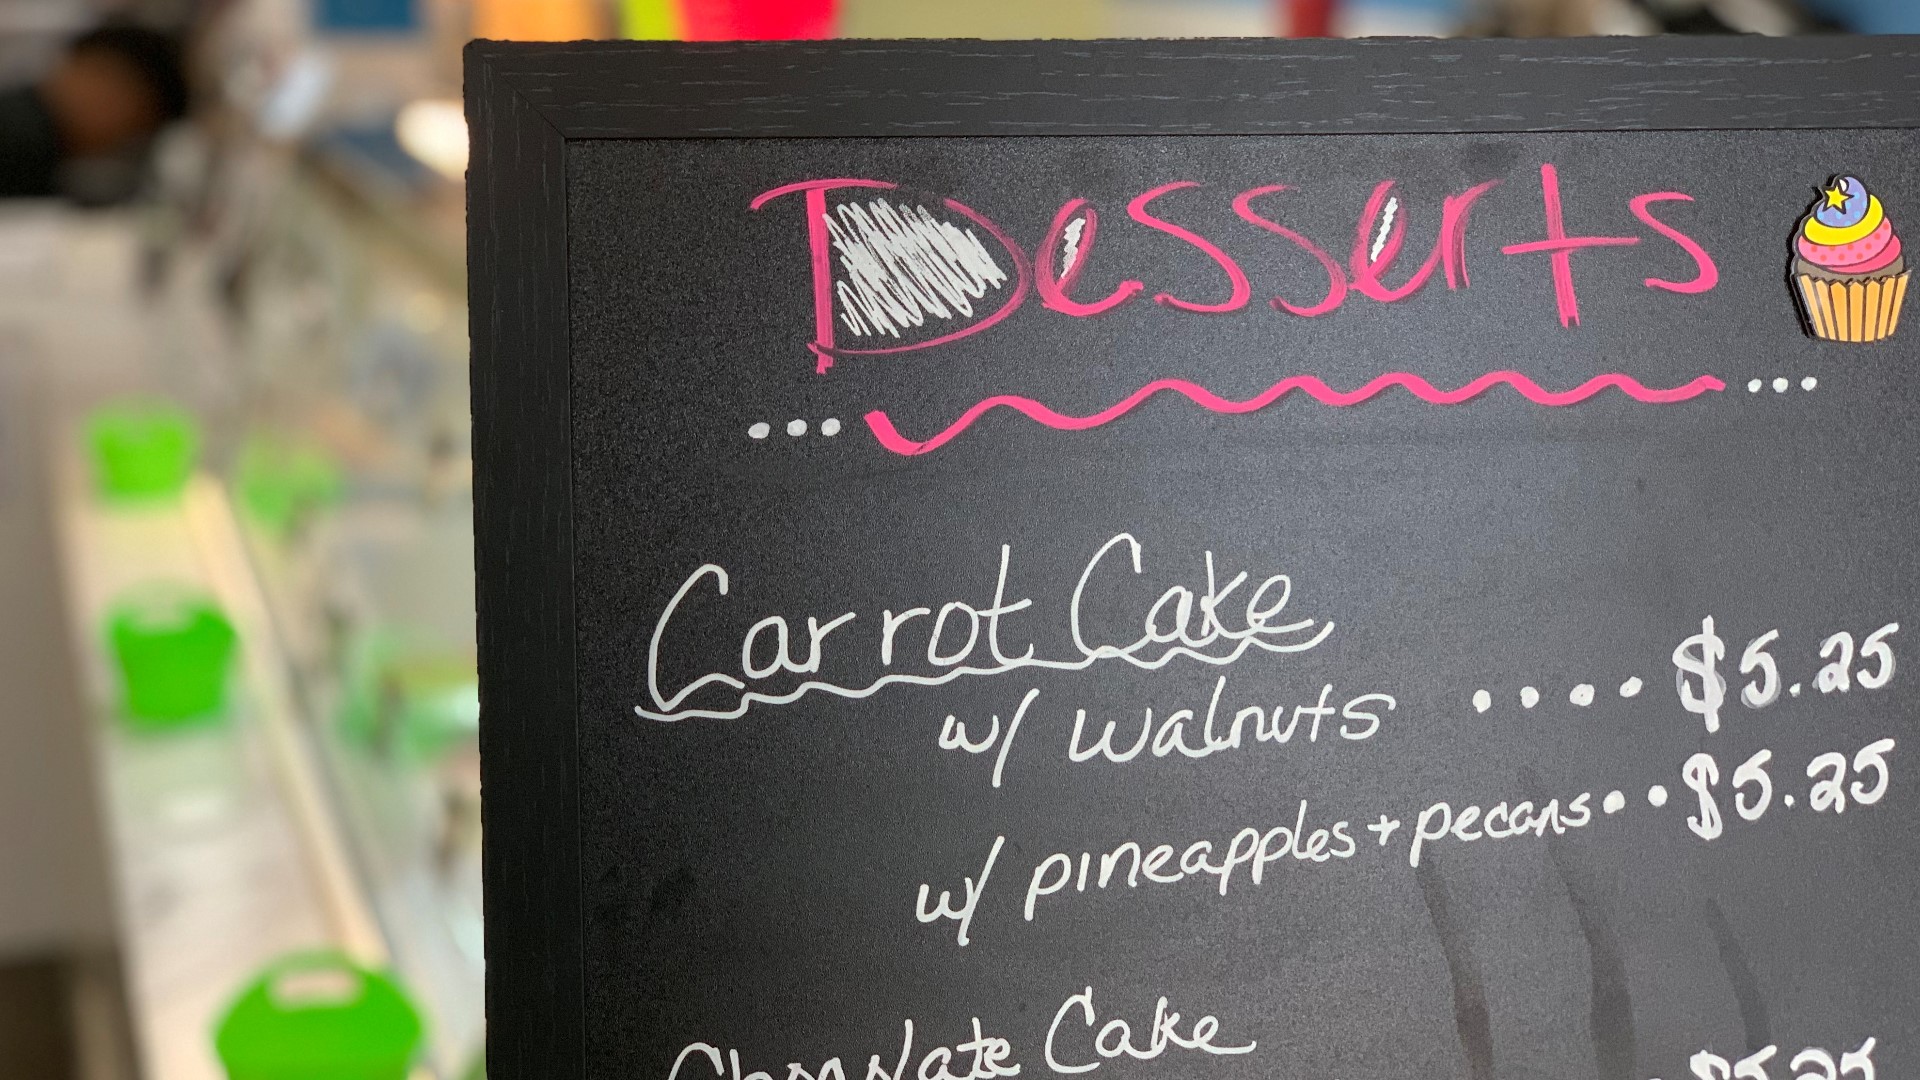 Desserts
Carrot Cake
w/ walnuts .... $5.25
w/ pineapples + pecans .. $5.25
Chocolate Cake
$5.25